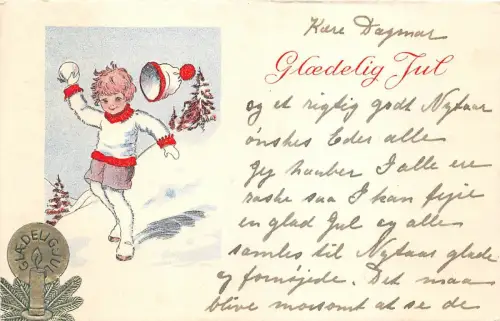 Kære Dagmar
Glædelig Jul
og et rigtig godt Nytaar
ønskes Eder alle
Jeg haaber I alle ere
raske saa I kan fejre
en glad Jul og alle
samles til Nytaar glade
og fornøjede. Det maa
blive morsomt at se de
GLÆDELIG JUL